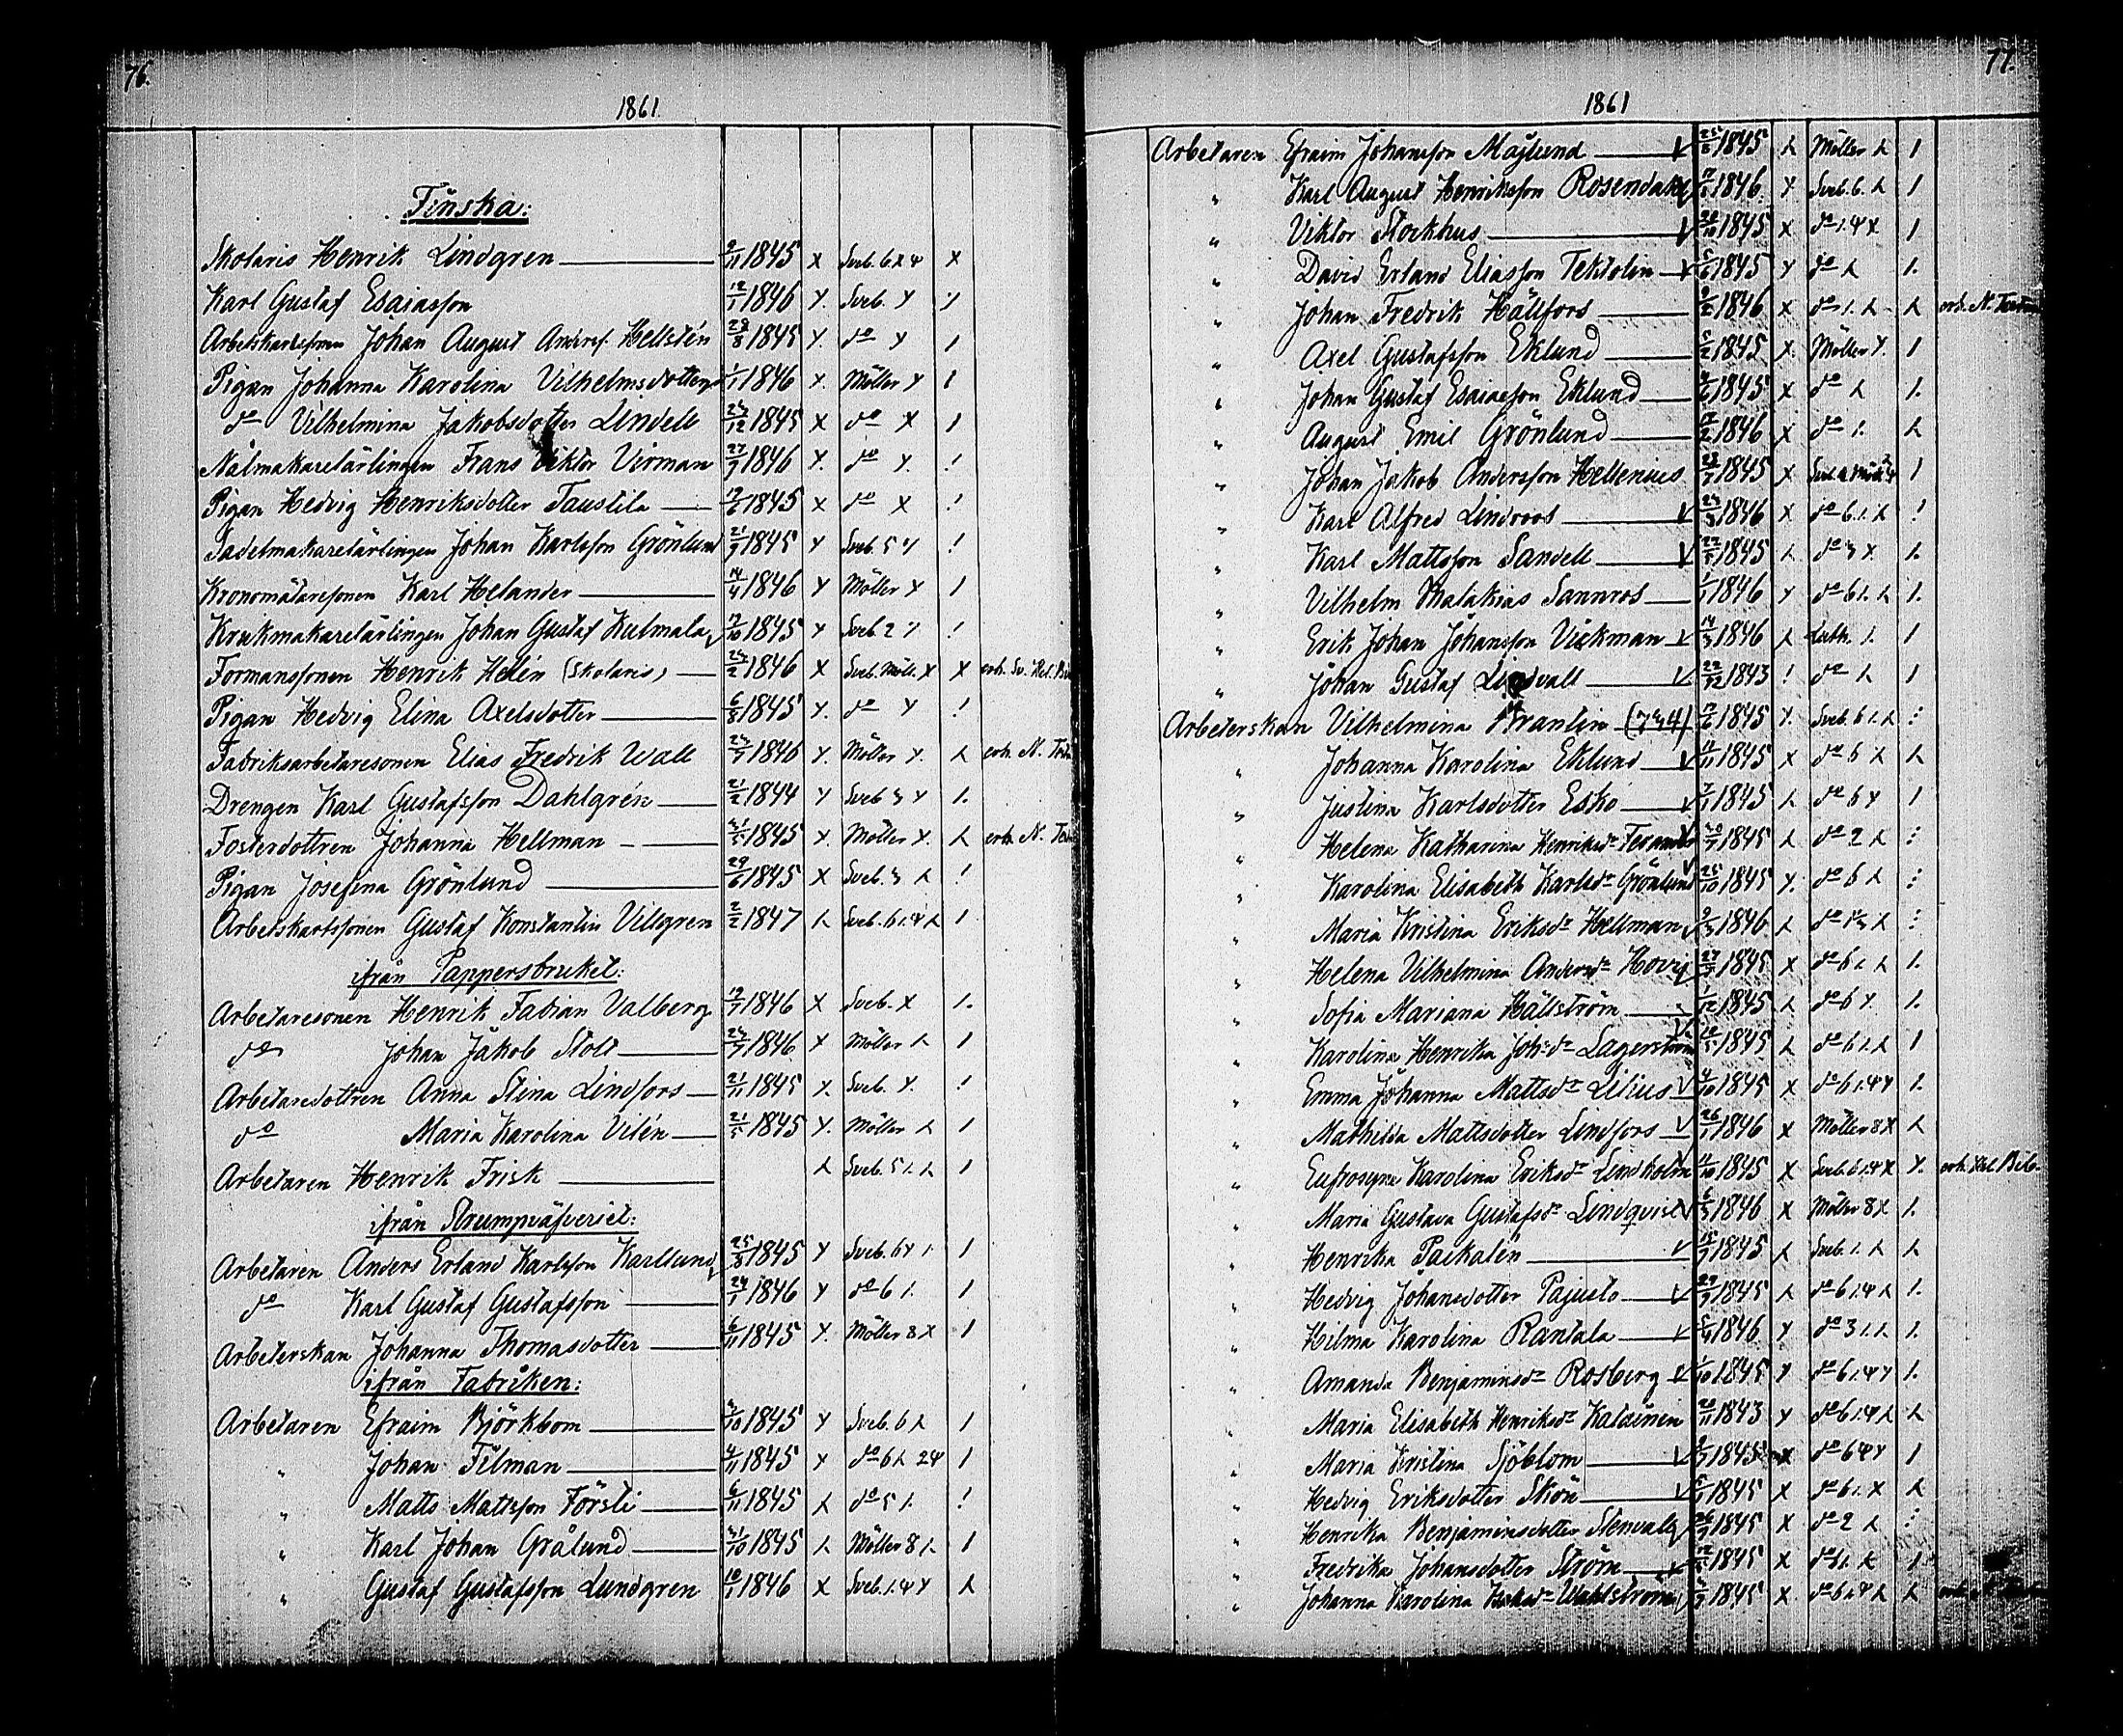 76.
1861.
Finska:
Skolaris Henrik Lindgren 9/11 1845 x Sveb. 6 x 4 x
Karl Gustaf Esaiasson 12/1 1846 Y. Sveb. Y
Johan August Anders. Hellstén 28/8 1845 Y. do Y 1
Pigan Johanna Karolina Vilhelmsdotter 1/1 1846 Y. Möller Y 1
do Vilhelmina Jakobsdotter Lindell 1845 X do X 1
Nålmakarelärlingen Frans Viktor Virman 27/7 1846 Y. do Y. !
Pigan Hedvig Henriksdotter Taustila 1845 X do X !
Sadelmakarelärlingen Johan Karlsson Grönlund 21/9 1845 Y Sveb. 5 Y !
Karl Helander 14/4 1846 Y Möller Y 1
Krukmakarelärlingen Johan Gustaf Kulmala 1845 Y Sveb. 2 Y !
Formanssonen Henrik Helén (Skolaris) 1846 X Sveb. Möll. X X erh. Sv.
Pigan Hedvig Elina Axelsdotter 6/8 1845 Y. do Y !
Fabriksarbetaresonen Elias Fredrik Wall 1846 Y. Möller Y. λ erh. N.
Drengen Karl Gustafsson Dahlgrén 21/2 1844 Y Sveb 3 Y 1.
Fosterdottren Johanna Hellman 1845 Y. Möller Y. λ erh. N.
Pigan Josefina Grönlund 29/6 1845 X Sveb. 3 λ !
Arbetskarlssonen Gustaf Konstantin Villgren 2/2 1847 λ Sveb. 6 1. 4 λ 1
ifrån Pappersbruket:
Arbetaresonen Henrik Fabian Valberg 19/7 1846 X Sveb. X 1.
do Johan Jakob Stolt 1846 Y Möller λ 1
Arbetaredottren Anna Stina Lindfors 21/11 1845 Y. Sveb. Y. !
do Maria Karolina Vilén 21/5 1845 Y. Möller λ 1
Arbetaren Henrik Frisk λ Sveb. 5 1. λ 1
ifrån Strumpväfveriet:
Arbetaren Anders Erland Karlsson Karllund 25/8 1845 Y Sveb. 6 Y 1. 1
do Karl Gustaf Gustafsson 24/1 1846 Y do 6 1. 1
Arbeterskan Johanna Thomasdotter 6/11 1845 Y. Möller 8 X 1
ifrån Fabriken:
Arbetaren Efraim Björkbom 1845 Y Sveb. 6 λ 1
" Johan Filman 4/11 1845 Y do 6 λ 24 1
" Matts Mattsson Försti 6/11 1845 λ do 5 1. !
" Karl Johan Grålund 31/10 1845 λ Möller 8 λ 1
" Gustaf Gustafsson Lundgren 10/1 1846 X Sveb. 1. 4 Y λ
77.
1861
Arbetaren Efraim Johansson Majlund 25/8 1845 λ Möller λ 1
" Karl August Henriksson Rosendahl 1846 Y Sveb. 6. λ 1
" Viktor Stockhus 1845 X do 1. 4 X 1
" David Erland Eliasson Tektolin 1845 Y do λ 1.
" Johan Fredrik Hällfors 9/2 1846 X do 1. λ λ erh. N.
" Axel Gustafsson Eklund 1845 X. Möller Y. 1
" Johan Gustaf Esaiasson Eklund 1845 X do λ 1.
" August Emil Grönlund 1846 X do 1. λ
" Johan Jakob Andersson Hellenius 23/7 1845 X 1
" Karl Alfred Lindroos 24/3 1846 X do 6. 1. λ !
" Karl Mattsson Sandell 22/5 1845 λ do 3 X 1.
" Vilhelm Malakias Sannros 1/1 1846 Y do 6 1. λ 1.
" Erik Johan Johansson Vickman 14/3 1846 λ Luth. 1. 1
" Johan Gustaf Lindvall 22/12 1843 ! do λ 1
Arbeterskan Vilhelmina Brantin (734) 1845 Y. Sveb. 6 1. λ
" Johanna Karolina Eklund 1845 X do 6 λ λ
" Justina Karlsdotter Esko 1845 λ do 6 Y 1
" Helena Katharina Henriksdr 1845 λ do 2 λ
" Karolina Elisabeth Karlsdr Grönlund 25/10 1845 Y. do 6 λ
" Maria Kristina Eriksdr Hellman 9/3 1846 λ do λ
" Helena Vilhelmina Andersdr 1845 X do 6 1. λ 1.
" Sofia Mariana Hällström 1/12 1845 λ do 6 Y. 1.
" Karolina Henrika Joh:dr Lagerström 1845 λ do 6 1. λ 1
" Emma Johanna Mattsdr Lilius 4/10 1845 X do 6 1. 4 Y 1.
" Mathilda Mattsdotter Lindfors 26/1 1846 X Möller 8 X λ
" Eufrosyne Karolina Eriksdr Lindholm 11/10 1845 X Sveb. 6 1. 4 X Y. erh. Bib.
" Maria Gustava Gustafsdr Lindqvist 1846 X Möller 8 X 1.
" Henrika Packalén 1845 λ Sveb. 1. λ λ
" Hedvig Johansdotter Pajusto 1845 λ do 6 1. 4 λ 1.
" Hilma Karolina Rantala 1846 Y do 3 1. λ 1.
" Amanda Benjaminsdr Rosberg 1/10 1845 Y do 6 1. 4 Y 1.
" Maria Elisabeth Henriksdr Kalainen 20/11 1843 Y do 6 1. 4 λ λ
" Maria Kristina Sjöblom 1845 X do 6 4 Y 1
" Hedvig Eriksdotter Skön 1845 X do 6 1. X λ
" Henrika Benjaminsdotter Stenvall 1845 X do 2 λ
" Fredrika Johansdotter Ström 1845 X do λ 1.
" Johanna Karolina Wahlström 1845 X. do 6 1. 4 λ λ